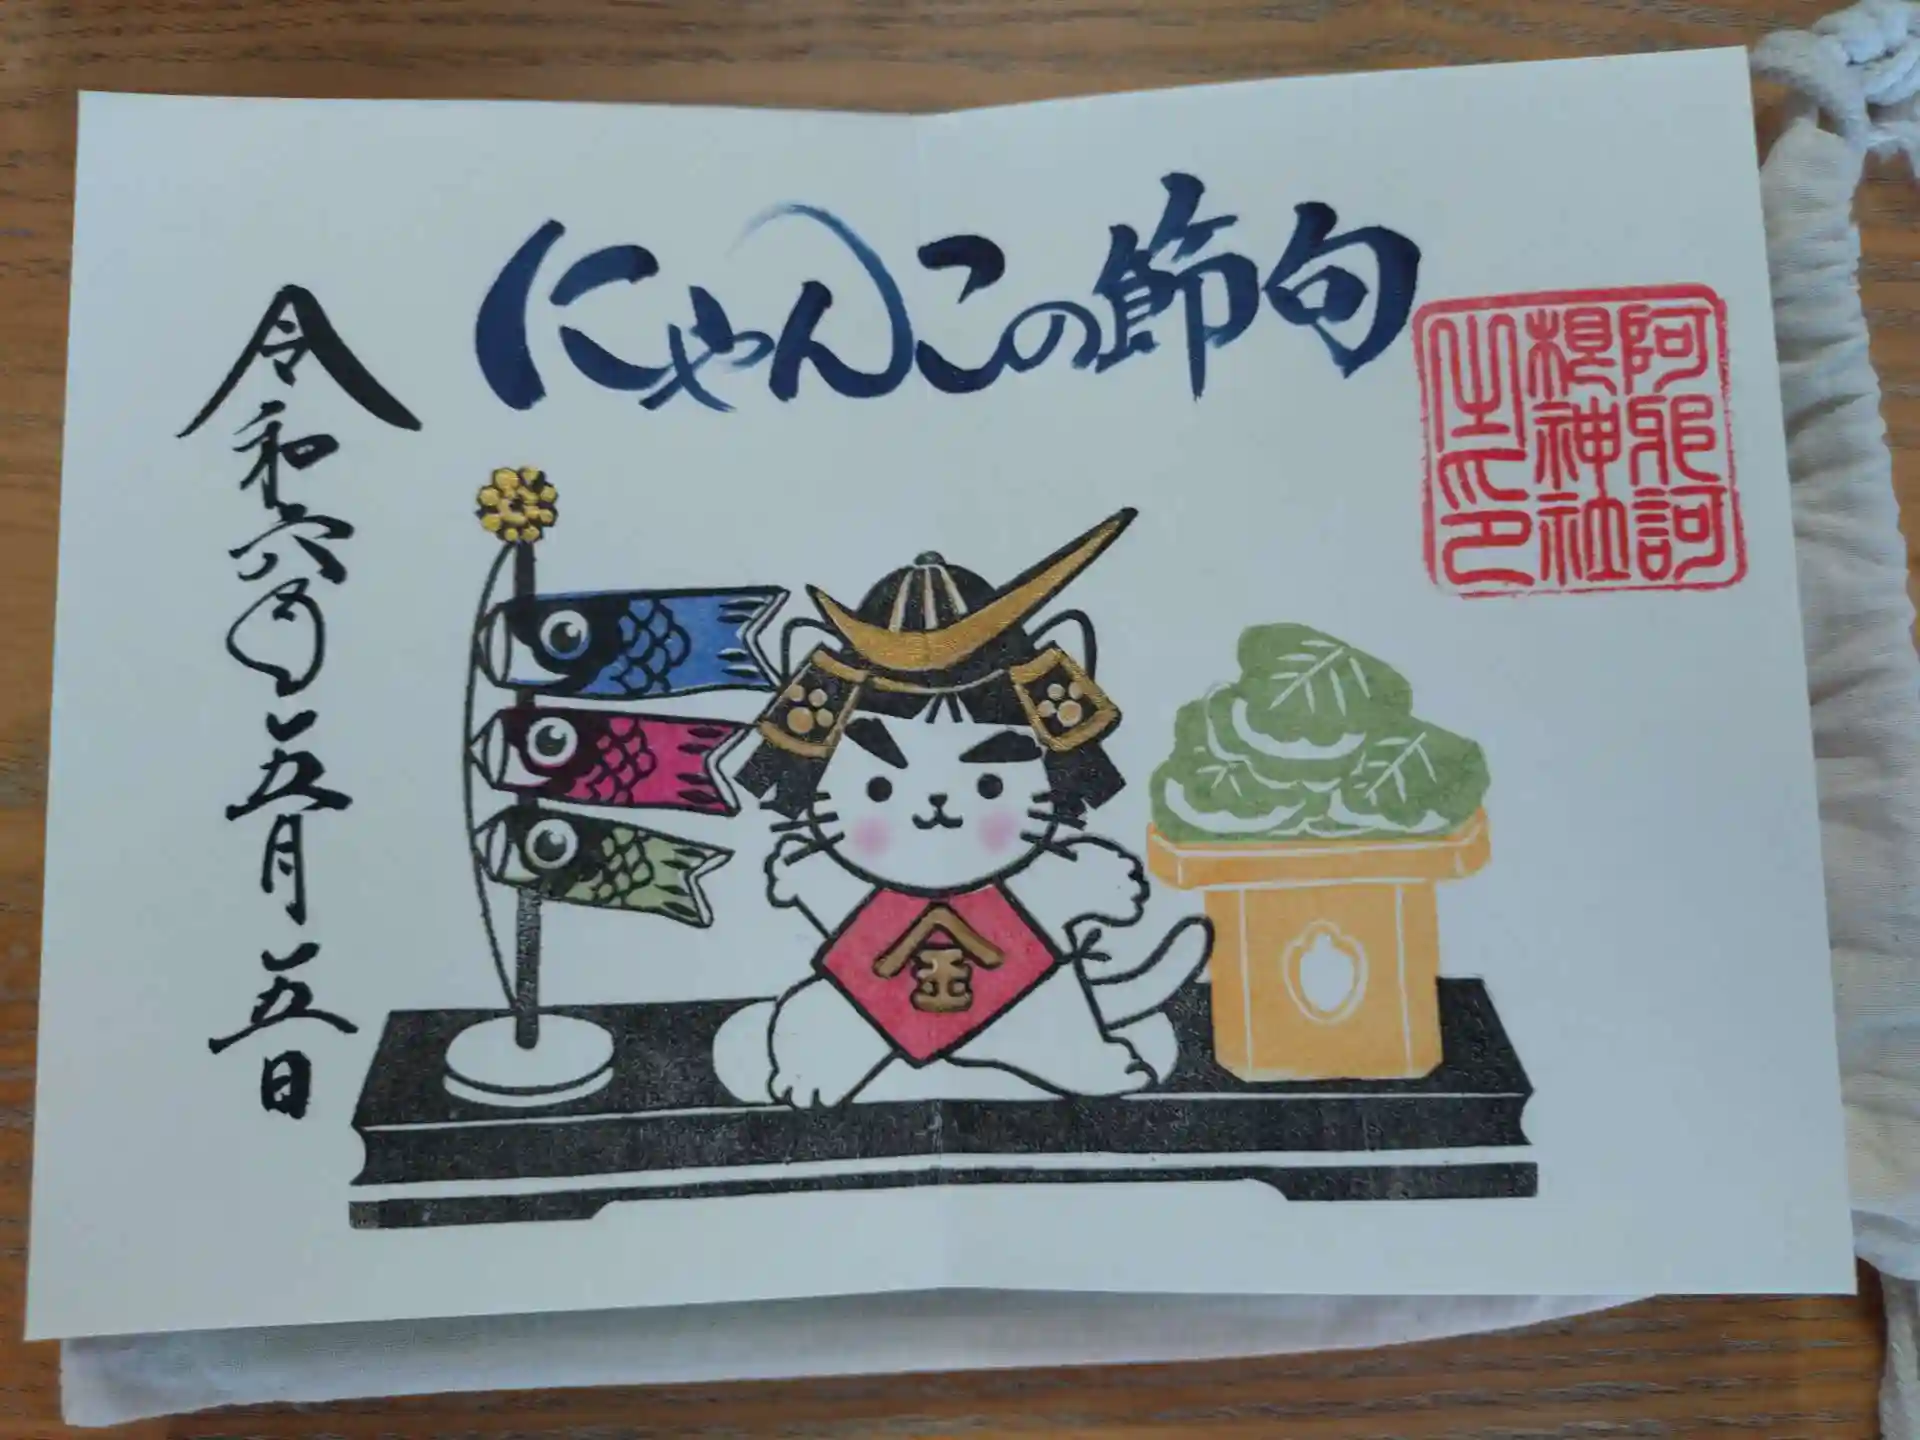 にゃんこの節句
阿邪訶
根神社
之印
金
令和六年五月五日